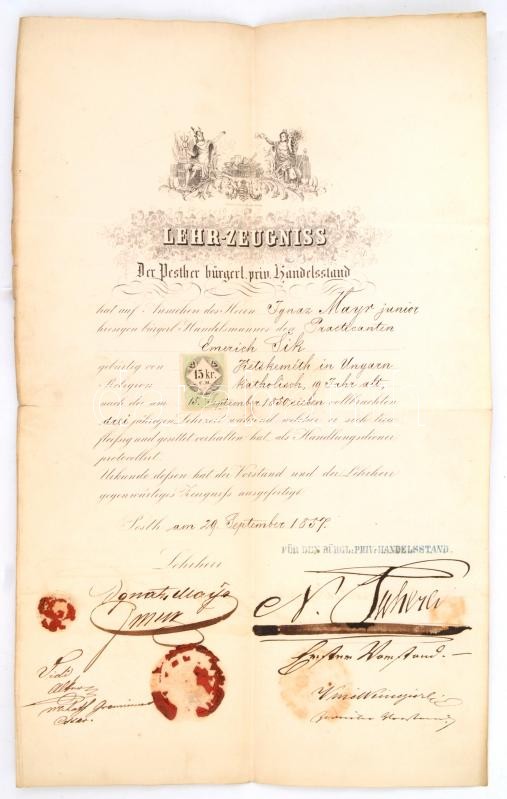 LEHR-ZEUGNISS
Der Pesther bürgerl. priv. Handelsstand
hat auf Ansuchen des Herrn Ignaz Mayr junior
hiesigen bürgerl. Handelsmannes den Practicanten
Emerich Sik
gebürtig von Ketskemith in Ungarn
Religion katholisch, 19 Jahr alt,
15 kr.
C.M.
nach der am 15. September
vollbrachten
drei jährigen Lehrzeit während welcher er sich treu
fleissig und gesittet verhalten hat, als Handlungsdiener
protocollirt.
Urkunde dessen hat der Vorstand und der Lehrherr
gegenwärtiges Zeugniss ausgefertigt
Pesth am 29 September 1857.
FÜR DEN BÜRGL: PRIV: HANDELSSTAND.
Lehrherr
Erster Vorstand.